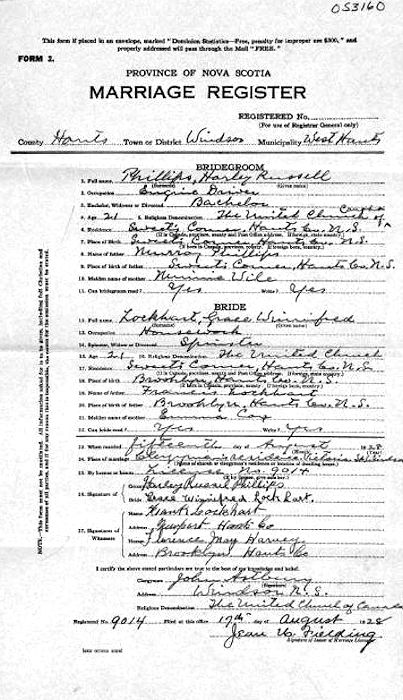 053160
This form if placed in an envelope, marked "Dominion Statistics—Free, penalty for improper use $300," and
properly addressed will pass through the Mail "FREE."
FORM 2.
PROVINCE OF NOVA SCOTIA
MARRIAGE REGISTER
REGISTERED No.
(For use of Registrar General only)
County Hants Town or District Windsor Municipality West Hants
BRIDEGROOM
1. Full name Phillips, Harley Russell
(Surname) (Given name)
2. Occupation Engine Driver
3. Bachelor, Widower or Divorced Bachelor
4. Age 21 5. Religious Denomination The United Church of Canada
6. Residence Sweets Corner, Hants Co. N.S.
7. Place of Birth Sweets Corner, Hants Co. N.S.
8. Name of father Murray Phillips
9. Place of birth of father Sweets Corner, Hants Co. N.S.
10. Maiden name of mother Minnie Wile
11. Can bridegroom read? Yes Write? Yes
BRIDE
Full name Lockhart, Grace Winnifred
(Surname) (Given name)
Occupation Housework
Spinster, Widow or Divorced Spinster
Age 21 Religious Denomination The United Church
17. Residence Sweets Corner, Hants Co. N.S.
18. Place of birth Brooklyn, Hants Co. N.S.
19. Name of father Francis Lockhart
20. Place of birth of father Brooklyn, Hants Co. N.S.
21. Maiden name of mother Emma Cox
22. Can bride read? Yes Write? Yes
23. When married fifteenth day of August 1928
24. Place of marriage Clergyman's residence, Victoria St. Windsor
25. By license or banns License No. 9014
26. Signature of
Groom Harley Russell Phillips
Bride Grace Winnifred Lockhart.
27. Signature of Witnesses
Name Frank Lockhart
Address Newport Hants Co
Name Florence May Harvey
Address Brooklyn Hants Co
I certify the above stated particulars are true to the best of my knowledge and belief.
Clergyman John Astbury
Address Windsor N.S.
Religious Denomination The United Church of Canada
Registered No. 9014 Filed at this office 17th day of August 1928
Jean W. Fielding
Signature of Issuer of Marriage Licenses
NOTE.—This form must not be mutilated. All information asked for is to be given, including full Christian and
surnames of all parties, and if for any reason this is impossible, the reason for the omission must be stated.